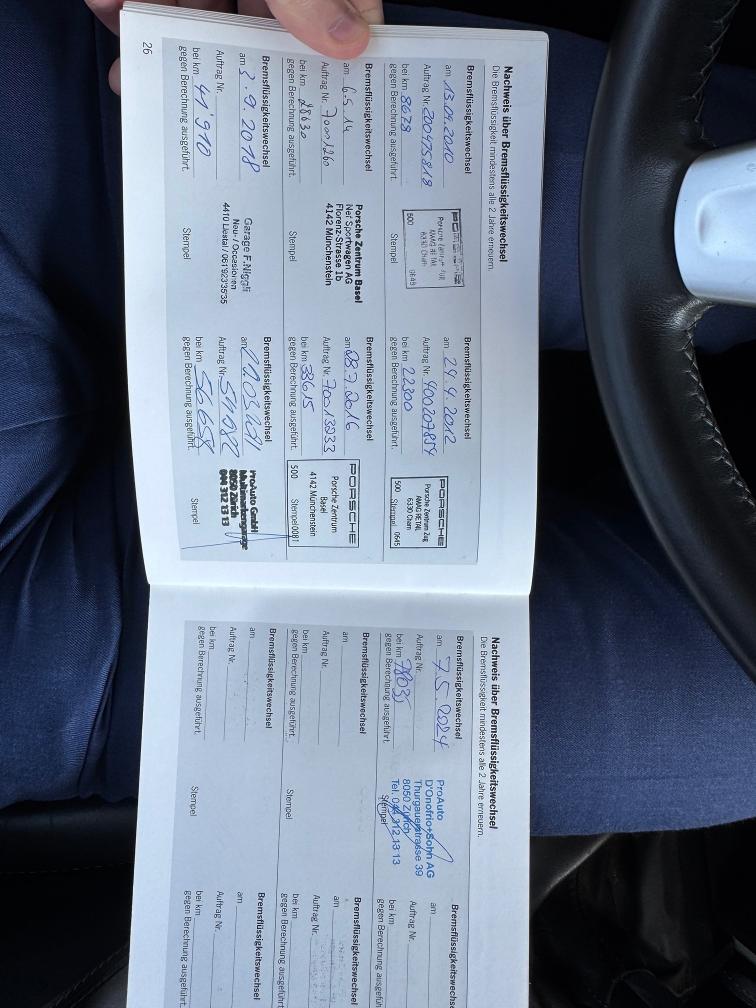 Nachweis über Bremsflüssigkeitswechsel
Die Bremsflüssigkeit mindestens alle 2 Jahre erneuern.
Bremsflüssigkeitswechsel
am 13.04.2010
Auftrag Nr. 200475818
bei km 8078
gegen Berechnung ausgeführt.
6330 Cham
500
Stempel
Bremsflüssigkeitswechsel
am 24.4.2012
Auftrag Nr. 400207854
bei km 22300
gegen Berechnung ausgeführt.
PORSCHE
Porsche Zentrum Zug
AMAG RETAIL
6330 Cham
500 Stempel 0645
Bremsflüssigkeitswechsel
am 6.5.14
Auftrag Nr. 70001260
bei km 28630
gegen Berechnung ausgeführt.
Porsche Zentrum Basel
Nef Sportwagen AG
Florenz-Strasse 1b
4142 Münchenstein
Stempel
Bremsflüssigkeitswechsel
am 08.7.2016
Auftrag Nr. 70013933
bei km 33615
gegen Berechnung ausgeführt.
PORSCHE
Porsche Zentrum
Basel
4142 Münchenstein
500 Stempel 0081
Bremsflüssigkeitswechsel
am 3.9.2018
Auftrag Nr.
bei km 41'910
gegen Berechnung ausgeführt.
Garage F. Niggli
Neu- / Occasionen
4410 Liestal / 061 923 35 35
Stempel
Bremsflüssigkeitswechsel
am
Auftrag Nr. 54087
bei km 56658
gegen Berechnung ausgeführt.
ProAuto GmbH
Multimarkengarage
8050 Zürich
044 312 13 13
Stempel
26
Nachweis über Bremsflüssigkeitswechsel
Die Bremsflüssigkeit mindestens alle 2 Jahre erneuern.
Bremsflüssigkeitswechsel
am 7.5.2024
Auftrag Nr.
bei km 78035
gegen Berechnung ausgeführt.
ProAuto
D'Onofrio+Sohn AG
Thurgauerstrasse 39
8050 Zürich
Tel. 044 312 13 13
Stempel
Bremsflüssigkeitswechsel
am
Auftrag Nr.
bei km
gegen Berechnung ausgeführt.
Bremsflüssigkeitswechsel
am
Auftrag Nr.
bei km
gegen Berechnung ausgeführt.
Stempel
Bremsflüssigkeitswechsel
am
Auftrag Nr.
bei km
gegen Berechnung ausgeführt.
Bremsflüssigkeitswechsel
am
Auftrag Nr.
bei km
gegen Berechnung ausgeführt.
Stempel
Bremsflüssigkeitswechsel
am
Auftrag Nr.
bei km
gegen Berechnung ausgeführt.